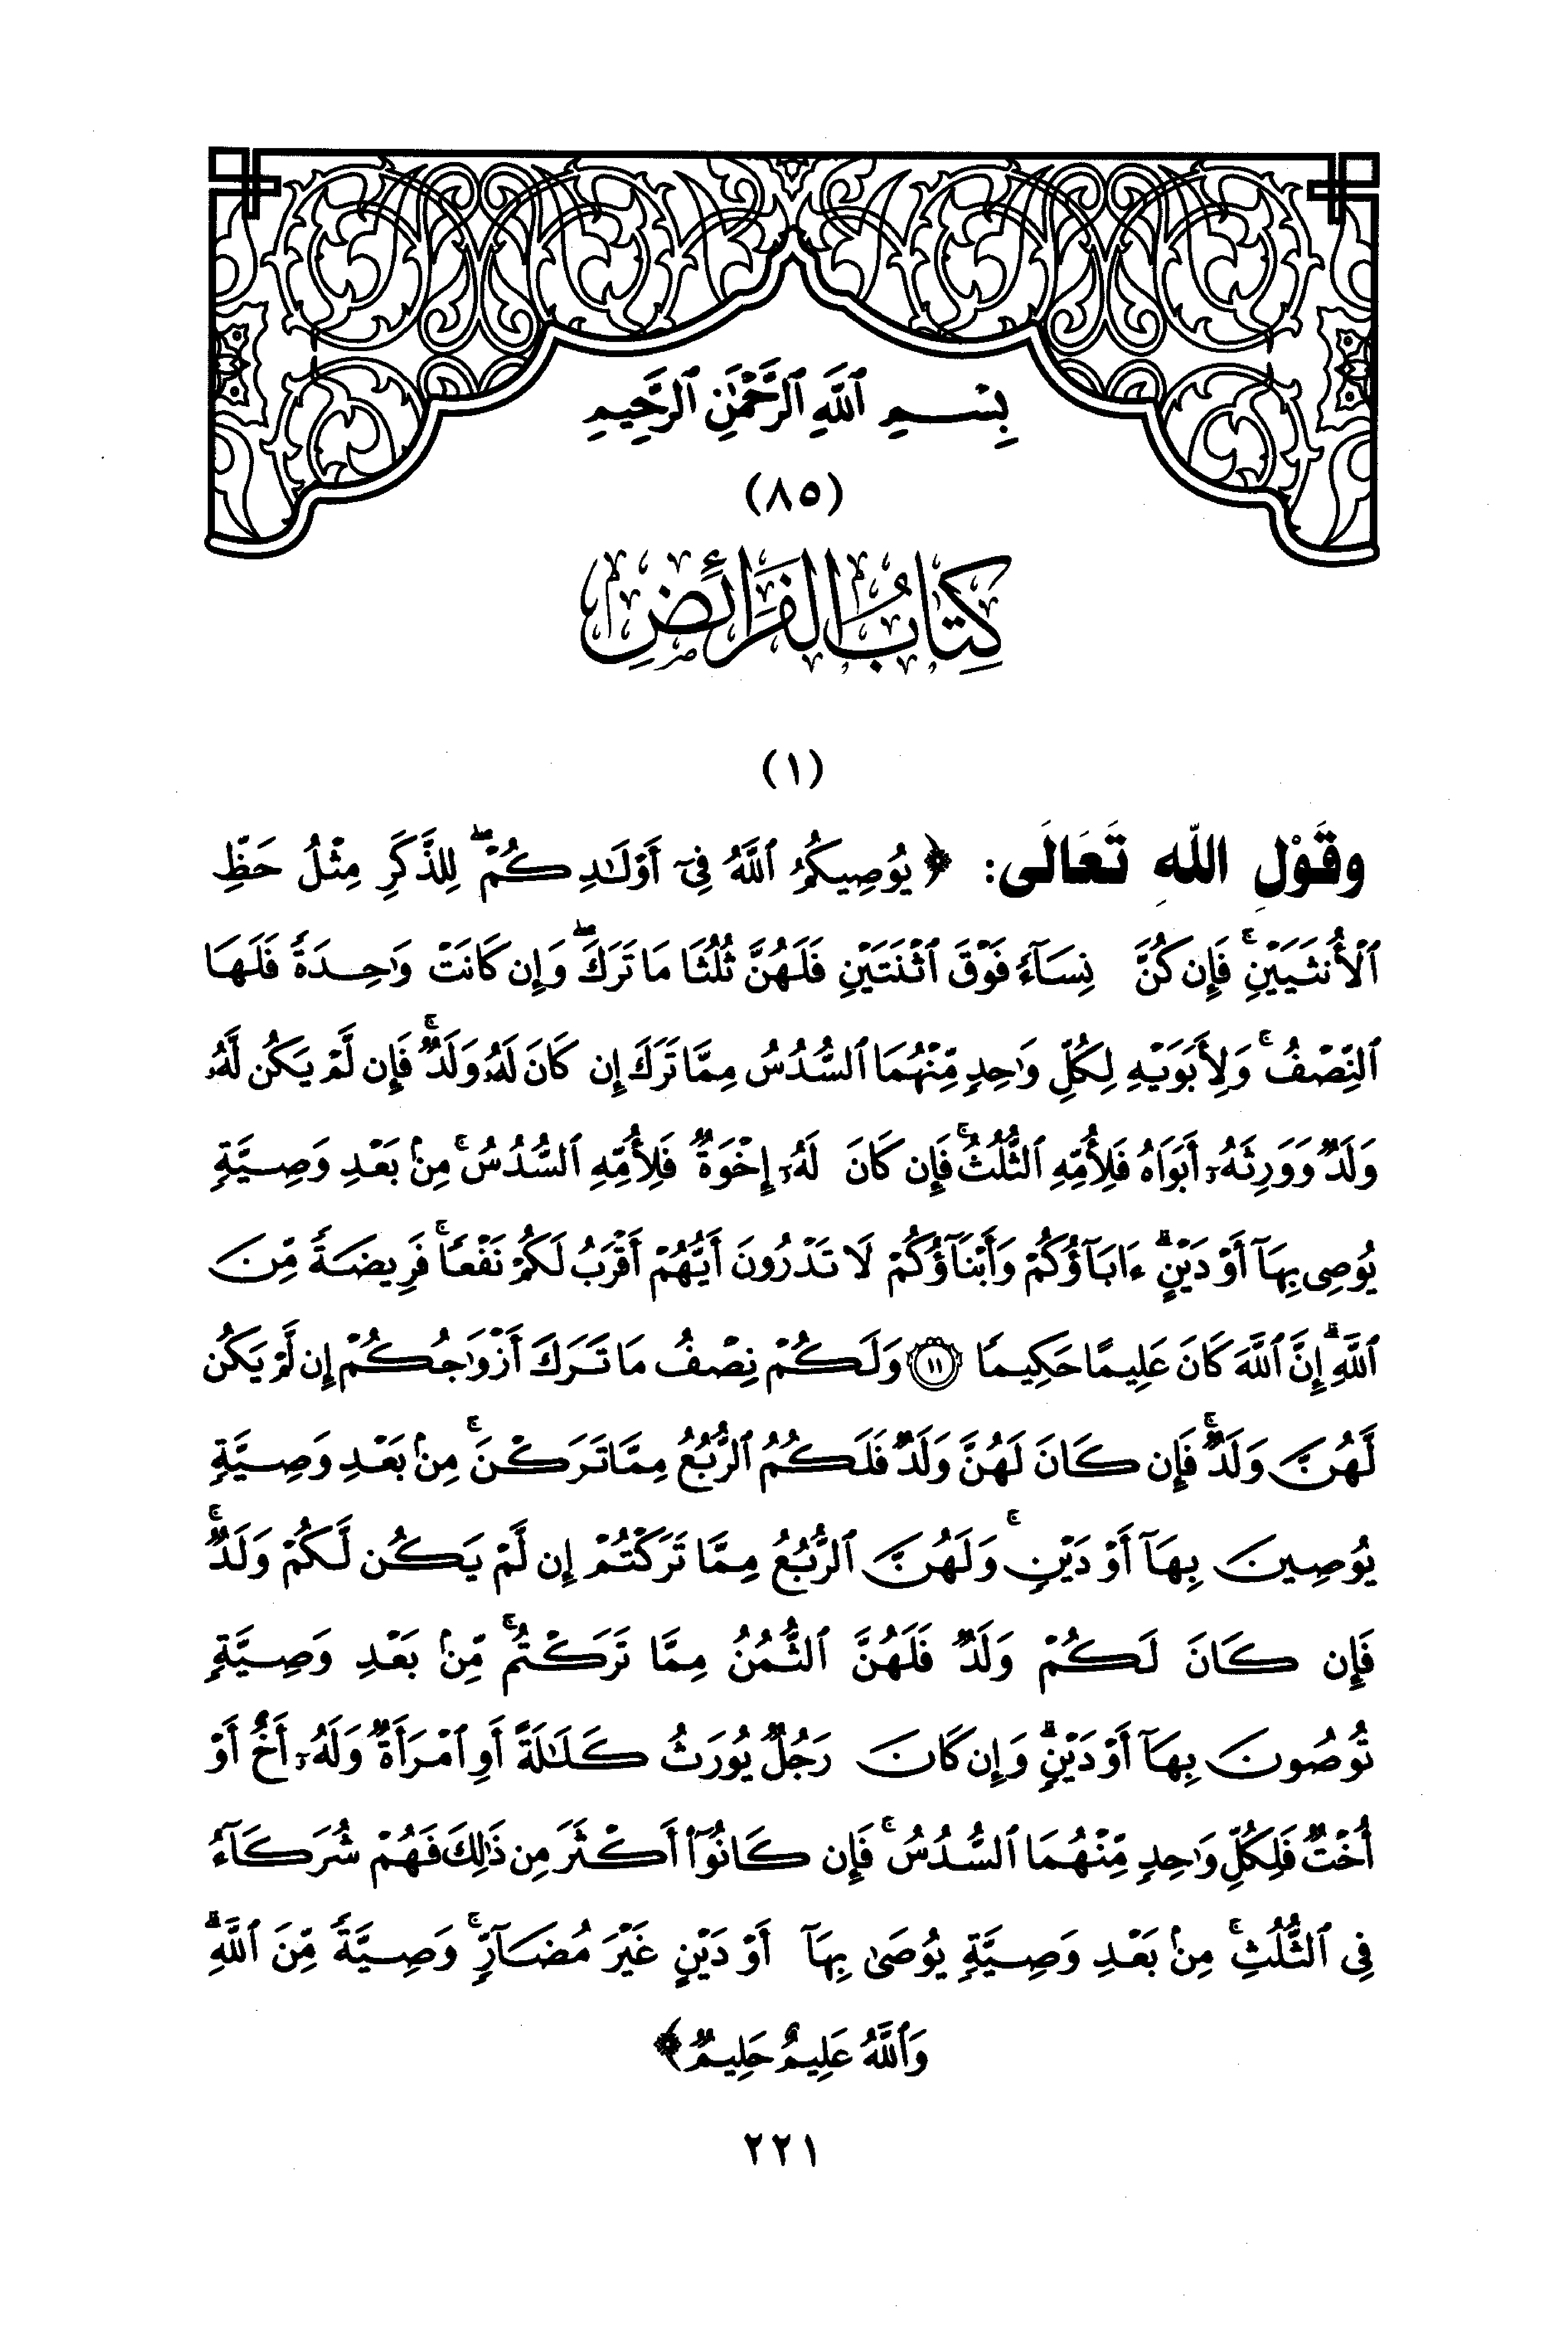 بِسْمِ ٱللَّهِ ٱلرَّحْمَٰنِ ٱلرَّحِيمِ
(٨٥)
كِتَابُ الفَرَائِضِ
(١)
وقَوْلِ اللهِ تَعَالَى: ﴿يُوصِيكُمُ ٱللَّهُ فِىٓ أَوْلَٰدِكُمْ ۖ لِلذَّكَرِ مِثْلُ حَظِّ
ٱلْأُنثَيَيْنِ ۚ فَإِن كُنَّ نِسَآءً فَوْقَ ٱثْنَتَيْنِ فَلَهُنَّ ثُلُثَا مَا تَرَكَ ۖ وَإِن كَانَتْ وَٰحِدَةً فَلَهَا
ٱلنِّصْفُ ۚ وَلِأَبَوَيْهِ لِكُلِّ وَٰحِدٍ مِّنْهُمَا ٱلسُّدُسُ مِمَّا تَرَكَ إِن كَانَ لَهُۥ وَلَدٌ ۚ فَإِن لَّمْ يَكُن لَّهُۥ
وَلَدٌ وَوَرِثَهُۥٓ أَبَوَاهُ فَلِأُمِّهِ ٱلثُّلُثُ ۚ فَإِن كَانَ لَهُۥٓ إِخْوَةٌ فَلِأُمِّهِ ٱلسُّدُسُ ۚ مِنۢ بَعْدِ وَصِيَّةٍ
يُوصِى بِهَآ أَوْ دَيْنٍ ۗ ءَابَآؤُكُمْ وَأَبْنَآؤُكُمْ لَا تَدْرُونَ أَيُّهُمْ أَقْرَبُ لَكُمْ نَفْعًا ۚ فَرِيضَةً مِّنَ
ٱللَّهِ ۗ إِنَّ ٱللَّهَ كَانَ عَلِيمًا حَكِيمًا ۝١١ وَلَكُمْ نِصْفُ مَا تَرَكَ أَزْوَٰجُكُمْ إِن لَّمْ يَكُن
لَّهُنَّ وَلَدٌ ۚ فَإِن كَانَ لَهُنَّ وَلَدٌ فَلَكُمُ ٱلرُّبُعُ مِمَّا تَرَكْنَ ۚ مِنۢ بَعْدِ وَصِيَّةٍ
يُوصِينَ بِهَآ أَوْ دَيْنٍ ۚ وَلَهُنَّ ٱلرُّبُعُ مِمَّا تَرَكْتُمْ إِن لَّمْ يَكُن لَّكُمْ وَلَدٌ ۚ
فَإِن كَانَ لَكُمْ وَلَدٌ فَلَهُنَّ ٱلثُّمُنُ مِمَّا تَرَكْتُم ۚ مِّنۢ بَعْدِ وَصِيَّةٍ
تُوصُونَ بِهَآ أَوْ دَيْنٍ ۗ وَإِن كَانَ رَجُلٌ يُورَثُ كَلَٰلَةً أَوِ ٱمْرَأَةٌ وَلَهُۥٓ أَخٌ أَوْ
أُخْتٌ فَلِكُلِّ وَٰحِدٍ مِّنْهُمَا ٱلسُّدُسُ ۚ فَإِن كَانُوٓا۟ أَكْثَرَ مِن ذَٰلِكَ فَهُمْ شُرَكَآءُ
فِى ٱلثُّلُثِ ۚ مِنۢ بَعْدِ وَصِيَّةٍ يُوصَىٰ بِهَآ أَوْ دَيْنٍ غَيْرَ مُضَآرٍّ ۚ وَصِيَّةً مِّنَ ٱللَّهِ ۗ
وَٱللَّهُ عَلِيمٌ حَلِيمٌ﴾
٢٢١